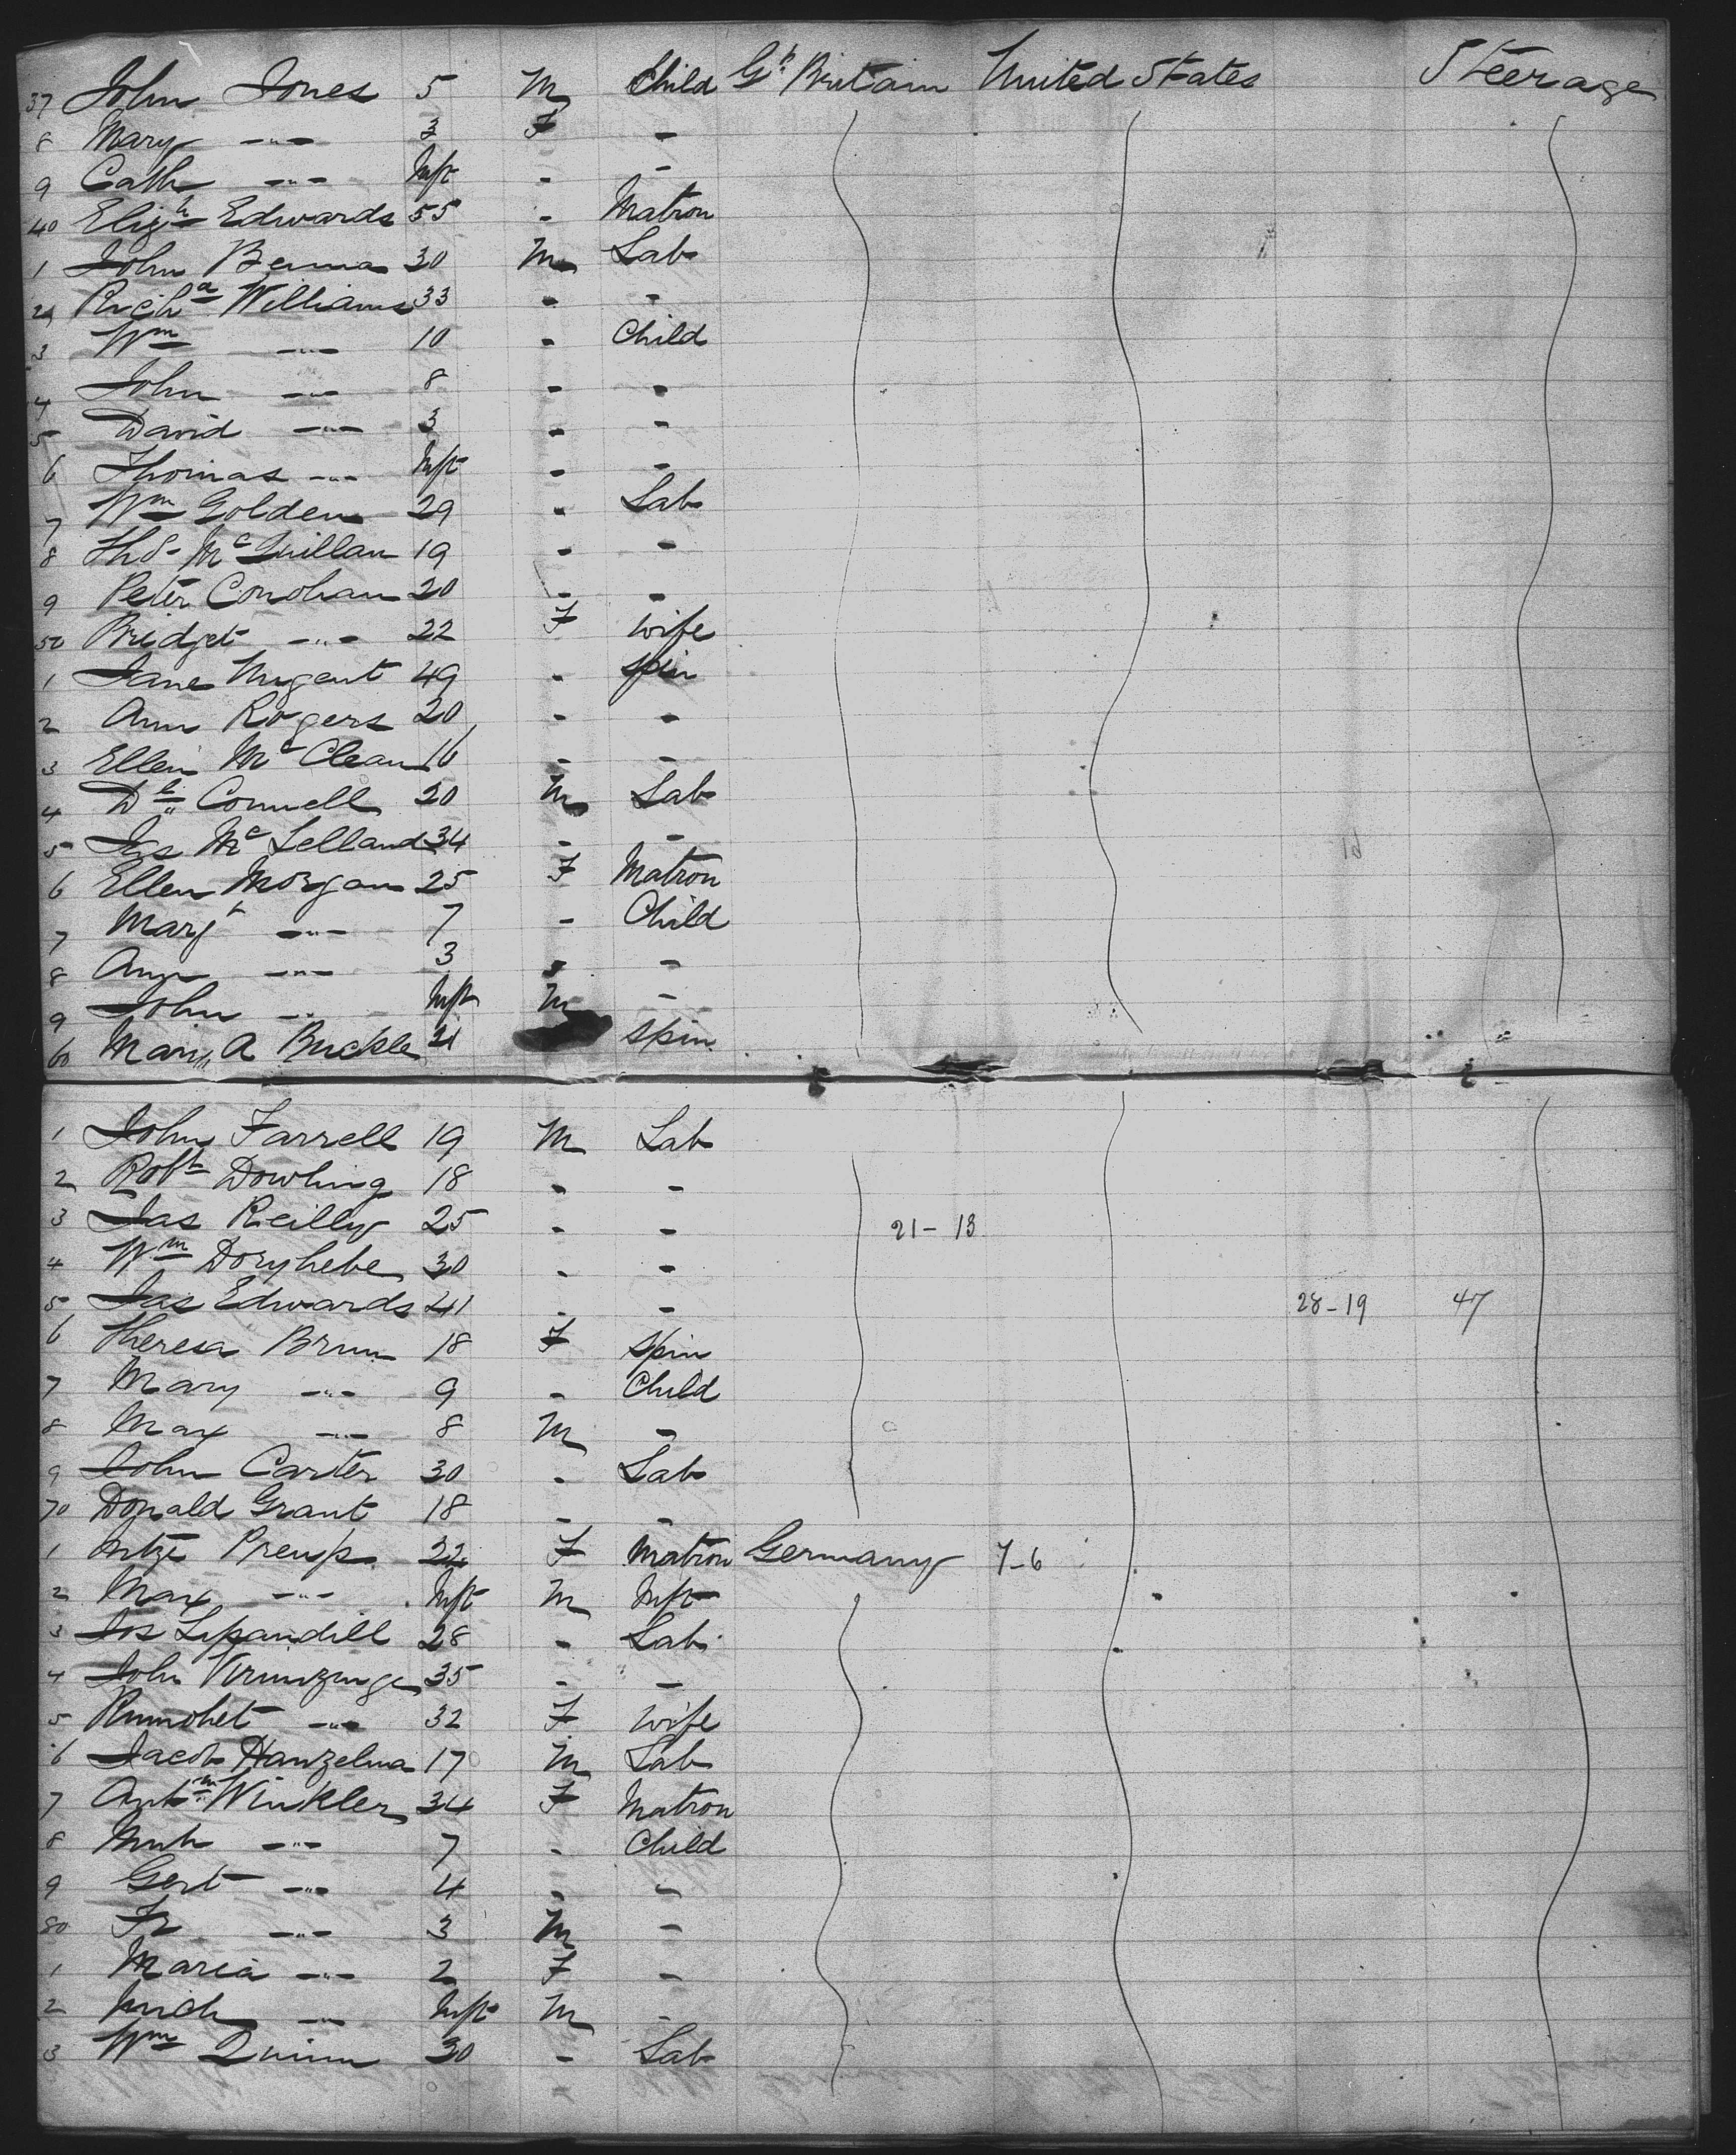 37 John Jones 5 M Child Gt Britain United States Steerage
8 Mary -"- 3 F -
9 Cath -"- Inft - -
40 Elizth Edwards 55 - Matron
1 John 30 M Lab
2 Richd Williams 33 - -
3 Wm -"- 10 - Child
4 John -"- 8 - -
5 David -"- 3 - -
6 Thomas -"- Inft - -
7 Wm Golden 29 - Lab
8 Thos McQuillan 19 - -
9 Peter Conohan 20 - -
50 Bridget -"- 22 F wife
1 Jane Nugent 49 - spin
2 Ann Rogers 20 - -
3 Ellen McClean 16 - -
4 Connell 20 M Lab
5 Jas McLelland 34 - -
6 Ellen Morgan 25 F Matron
7 Margt -"- 7 - Child
8 Ann -"- 3 - -
9 John -"- Inft M -
60 Mary A Buckle 21 spin
1 John Farrell 19 M Lab
2 Robt Dowling 18 - -
3 Jas Reilly 25 - - 21-13
4 Wm 30 - -
5 Jas Edwards 21 - - 28-19 47
6 Theresa Brun 18 F spin
7 Mary -"- 9 - Child
8 Max -"- 8 M -
9 John Carter 30 - Lab
70 Donald Grant 18 - -
1 22 F Matron Germany 7-6
2 Max -"- Inft M Inft
3 Jos 28 - Lab
4 John 35 - -
5 -"- 32 F wife
6 Jacob Hanzelma 17 M Lab
7 Winkler 34 F Matron
8 -"- 7 - Child
9 Gert -"- 4 - -
80 Fr -"- 3 M -
1 Maria -"- 2 F -
2 Mich -"- Inft M -
3 Wm Quinn 30 - Lab